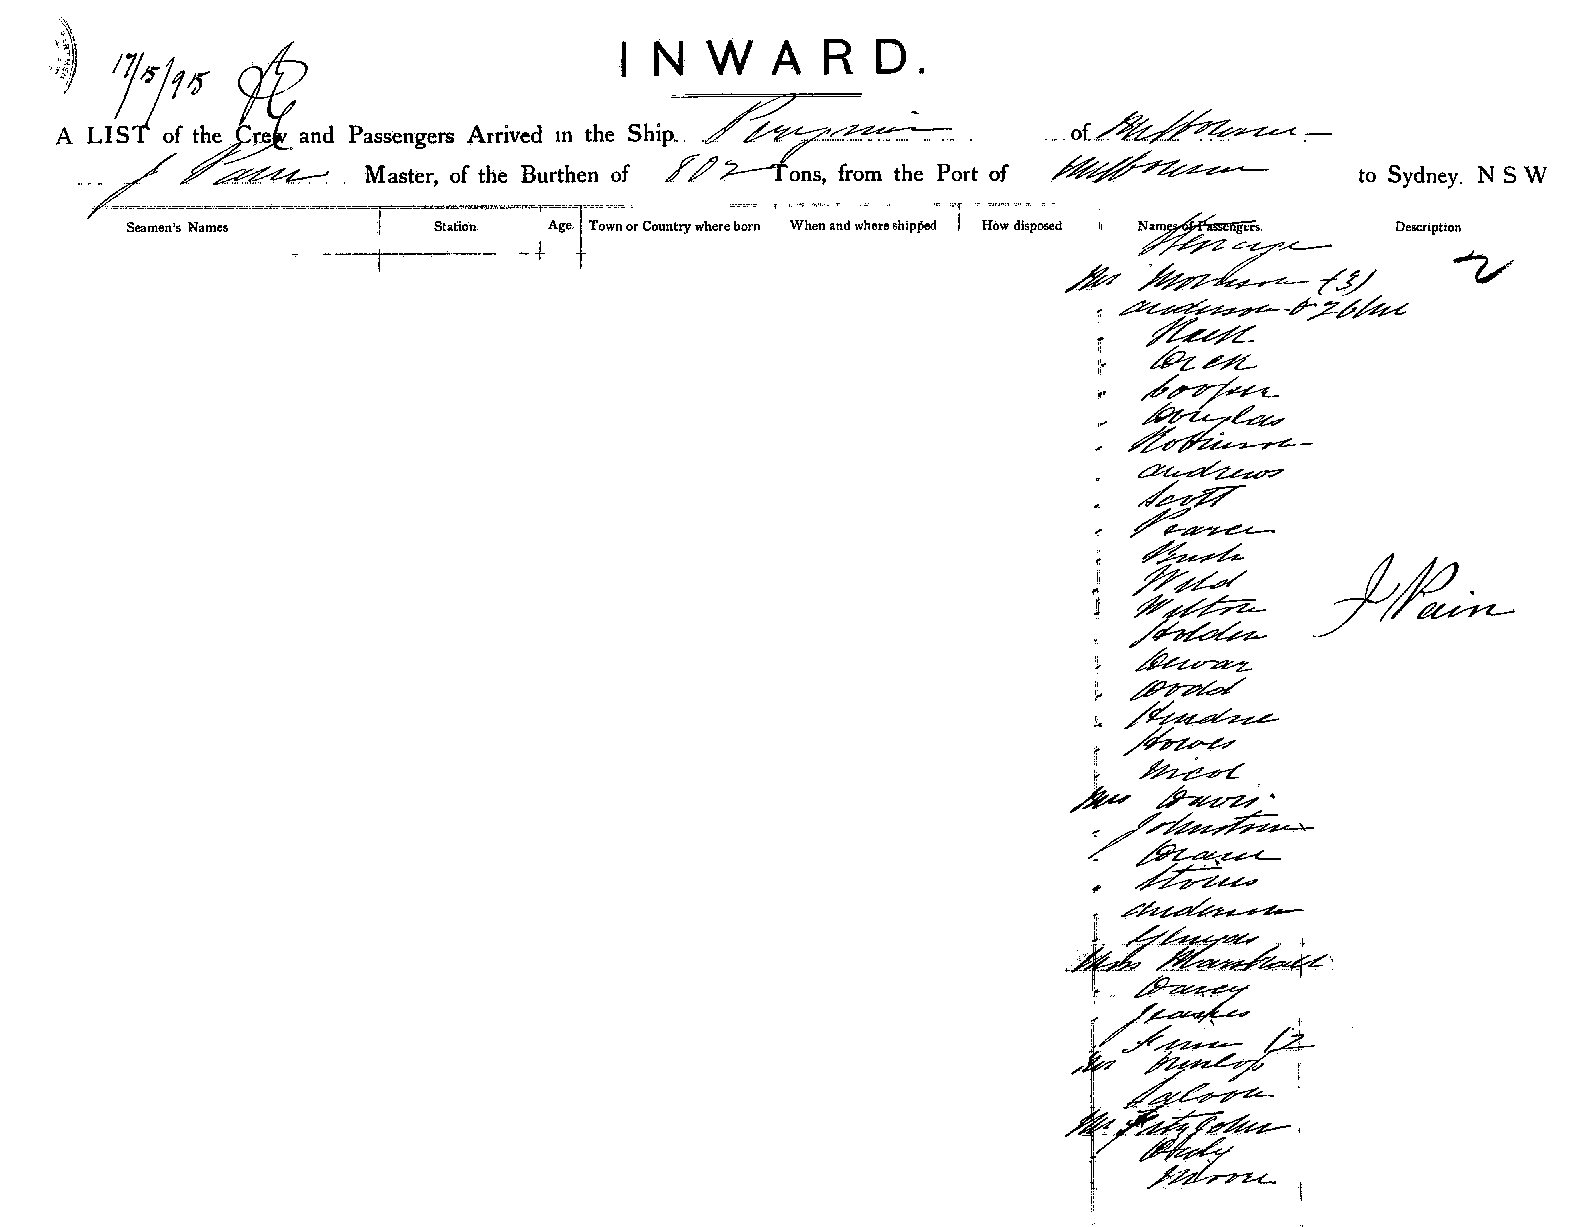 17/5/95
INWARD.
A LIST of the Crew and Passengers Arrived in the Ship. Peregrine of Melbourne
J Pain Master, of the Burthen of 802 Tons, from the Port of Melbourne to Sydney. N S W
Seamen's Names Station. Age. Town or Country where born When and where shipped How disposed Names of Passengers. Description
Steerage
2
Mr Morrison (3)
" Anderson &
" Nash
" Cooper
" Douglas
" Robinson
" Andrews
" Scott
" Pearce
" Bush
" Wild
" Wilton
" Holden
J Pain
" Dewar
" Dodd
" Hendrie
" Howes
" Nicol
Mrs Davis
" Johnstone
" Storus
" Anderson
Miss Marshall
" Darcy
" Jeanes
Mr Dunlop
Saloon
Mr FitzJohn
Moore